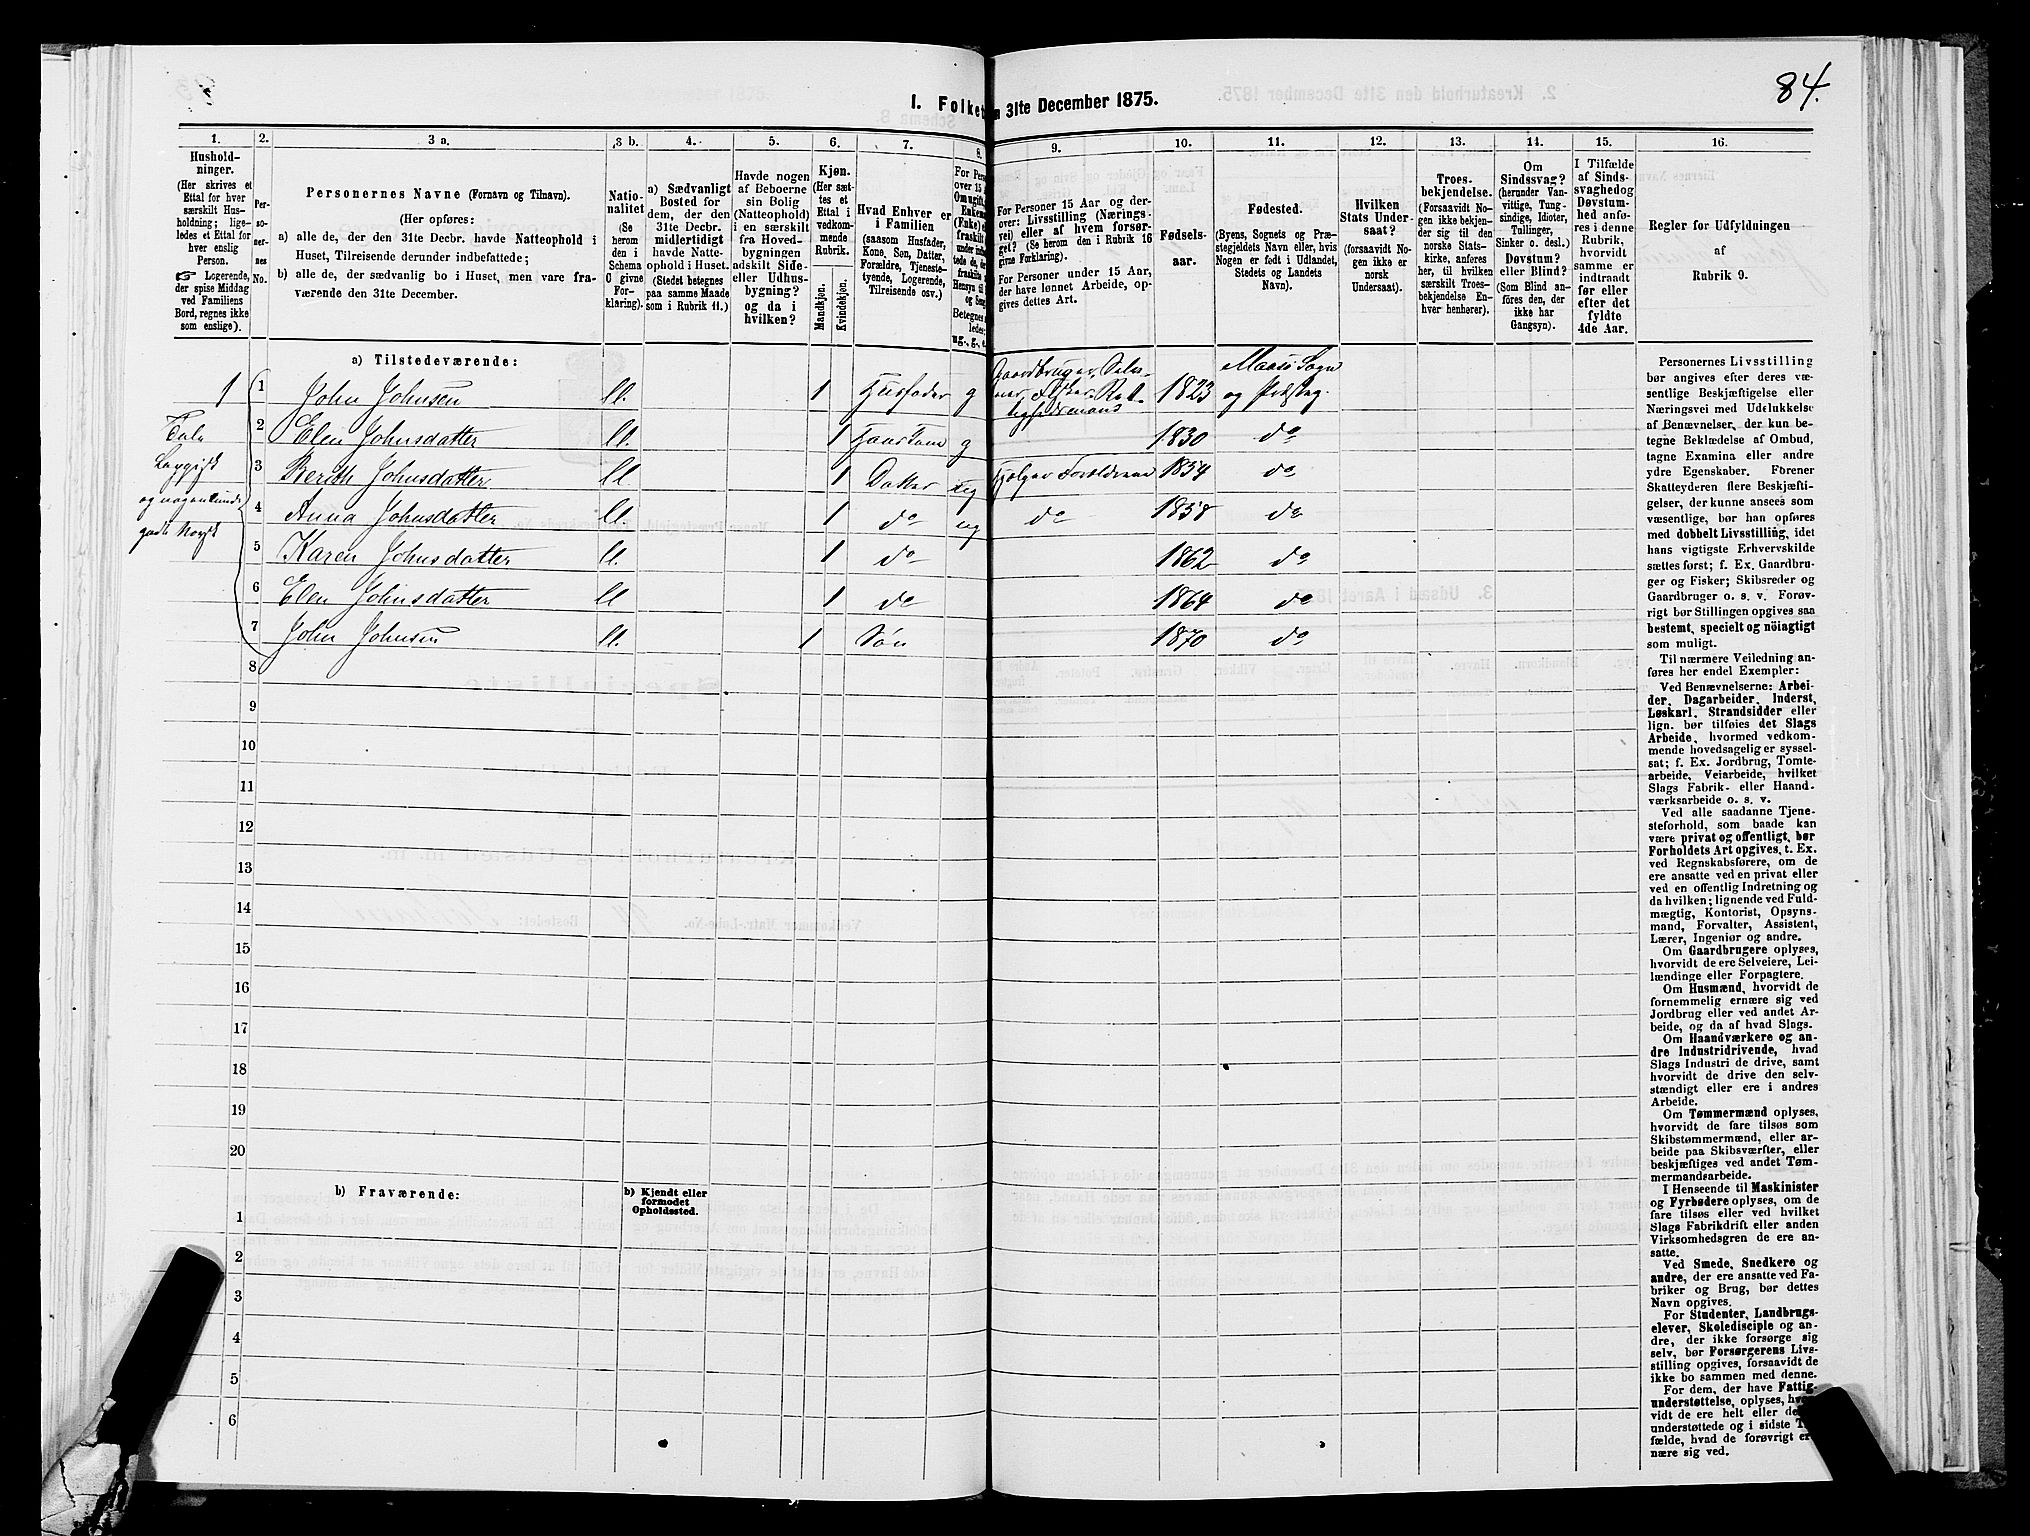 84.
I. Folket
n 31te December 1875.
1.
2.
3 a.
3 b.
4.
5.
6.
7.
8.
9.
10.
11.
12.
13.
14.
15.
16.
Hushold-
ninger.
(Her skrives et
Ettal for hver
særskilt Hus-
holdning; lige-
ledes et Ettal for
hver enslig
Person.
☞ Logerende,
der spise Middag
ved Familiens
Bord, regnes ikke
som enslige).
Per-
so-
ner-
nes
No.
Personernes Navne (Fornavn og Tilnavn).
(Her opføres:
a) alle de, der den 31te Decbr. havde Natteophold i
Huset, Tilreisende derunder indbefattede;
b) alle de, der sædvanlig bo i Huset, men vare fra-
værende den 31te December.
Natio-
nalitet
(Se
herom
den i
Schema
0 givne
For-
klaring).
a) Sædvanligt
Bosted for
dem, der den
31te Decbr.
midlertidigt
havde Natte-
ophold i Huset.
(Stedet betegnes
paa samme Maade
som i Rubrik 11.)
Havde nogen
af Beboerne
sin Bolig
(Natteophold)
i en særskilt
fra Hoved-
bygningen
adskilt Side-
eller Udhus-
bygning?
og da i
hvilken?
Kjøn.
(Her sæt-
tes et
Ettal i
vedkom-
mende
Rubrik.
Mandkjøn.
Kvindekjøn.
Hvad Enhver er
i Familien
(saasom Husfader,
Kone, Søn, Datter,
Forældre, Tjeneste-
tyende, Logerende,
Tilreisende osv.)
For Pers
over 15 a
Omugift,
Enkem
(Enke) e
fraskilt
Betegnes
ledes:
ug., g., e.
For Personer 15 Aar og der-
over: Livsstilling (Nærings-
vei) eller af hvem forsør-
get? (Se herom den i Rubrik 16
givne Førklaring).
For Personer under 15 Aar,
der have lønnet Arbeide, op-
gives dettes Art.
Fødsels-
aar.
Fødested.
(Byens, Sognets og Præ-
stegjeldets Navn eller, hvis
Nogen er født i Udlandet,
Stedets og Landets
Navn).
Hvilken
Stats Under-
saat?
(forsaavidt No-
gen ikke er
norsk
Undersaat).
Troes-
bekjendelse.
(Forsaavidt No-
gen ikke bekjen-
der sig til den
norske Stats-
kirke, anføres
her, til hvilken
særskilt Troes-
bekjendelse En-
hver henhører).
Om
Sindssvag?
(herunder Van-
vittige, Tung-
sindige, Idioter,
Tullinger,
Sinker o. desl.)
Døvstum?
eller Blind?
(Som Blind an-
føres den, der
ikke har
Gangsyn).
I Tilfælde
af Sinds-
svaghedog
Døvstum-
hed anfø-
res i denne
Rubrik,
hvorvidt
samme er
indtraadt
før eller
efter det
fyldte
4de Aar.
Regler for Udfyldningen
af
Rubrik 9.
a) Tilstedeværende:
1 1 John Johnsen ll. 1 Husfader g Gaardbruger, Selv- 1823 Maasö Sogn og
2 Elen Johnsdatter ll. 1 g 1830 do
3 Berith Johnsdatter ll 1 Datter ug 1854 do
4 Anna Johnsdatter ll. 1 do ug do 1858 do
5 Karen Johnsdatter ll. 1 do 1862 do
6 Elen Johnsdatter ll 1 do 1864 do
7 John Johnsen ll. 1 Søn 1870 do
Tale
Lappisk
8
9
10
11
12
13
14
15
16
17
18
19
20
b) Fraværende:
b) Kjendt eller
formodet
Opholdssted.
1
2
3
4
5
6
Personernes Livsstilling
bør angives efter deres væ-
sentlige Beskjæftigelse eller
Næringsvei med Udelukkelse
af Benævnelser, der kun be-
tegne Beklædelse af Ombud,
tagne Examina eller andre
ydre Egenskaber. Förener
Skatteyderen flere Beskjæfti-
gelser, der kunne ansees som
væsentlige, bør han opføres
med dobbelt Livsstilling, idet
hans vigtigste Erhvervskilde
sættes først; f. Ex. Gaardbru-
ger og Fisker; Skibsreder og
Gaardbruger o. s. v. Forøv-
rigt bør Stillingen opgives saa
bestemt, specielt og nöiagtigt
som muligt.
Til nærmere Veiledning an-
føres her endel Exempler:
Ved Benævnelserne: Arbei-
der, Dagarbeider, Inderst,
Løskarl, Strandsidder eller
lign. bør tilføies det Slags
Arbeide, hvormed vedkom-
mende hovedsagelig er syssel-
sat; f. Ex. Jordbrug, Tomte-
arbeide, Veiarbeide, hvilket
Slags Fabrik- eller Haand-
værksarbeide o. s. v.
Ved alle saadanne Tjene-
steforhold, som baade kan
være privat og offentligt, bør
Forholdets Art opgives, t. Ex.
ved Regnskabsførere, om de
ere ansatte ved en privat eller
ved en offentlig Indretning og
da hvilken; lignende ved Fuld-
mægtig, Kontorist, Opsyns-
mand, Forvalter, Assistent,
Lærer, Ingeniør og andre.
Om Gaardbrugere oplyses,
hvorvidt de ere Selveiere, Lei-
lændinge eller Forpagtere.
Om Husmænd, hvorvidt de
fornemmelig ernære sig ved
Jordbrug eller ved andet Ar-
beide, og da af hvad Slags.
Om Haandværkere og an-
dre Industridrivende, hvad
Slags Industri de drive, samt
hvorvidt de drive den selv-
stændigt eller ere i andres
Arbeide.
Om Tømmermænd oplyses,
hvorvidt de fare tilsøs som
Skibstømmermænd, eller ar-
beide paa Skibsværfter, eller
beskjæftiges ved andet Tøm-
mermandsarbeide.
I Henseende til Maskinister
og Fyrbødere oplyses, om de
fare tilsøs eller ved hvilket
Slags Fabrikdrift eller anden
Virksomhedsgren de ere an-
satte.
Ved Smede, Snedkere og
andre, der ere ansatte ved Fa-
briker og Brug, bør dettes
Navn opgives.
For Studenter, Landbrugs-
elever, Skoledisciple og an-
dre, der ikke forsørge sig
selv, bør Forsørgerens Livs-
stilling opgives, forsaavidt de
ikke bo sammen med denne.
For dem, der have Fattig-
understøttelse, oplyses, hvor-
vidt de ere helt eller
understøttede og i sidste
fælde, hvad de forøvrigt er-
nære sig ved.